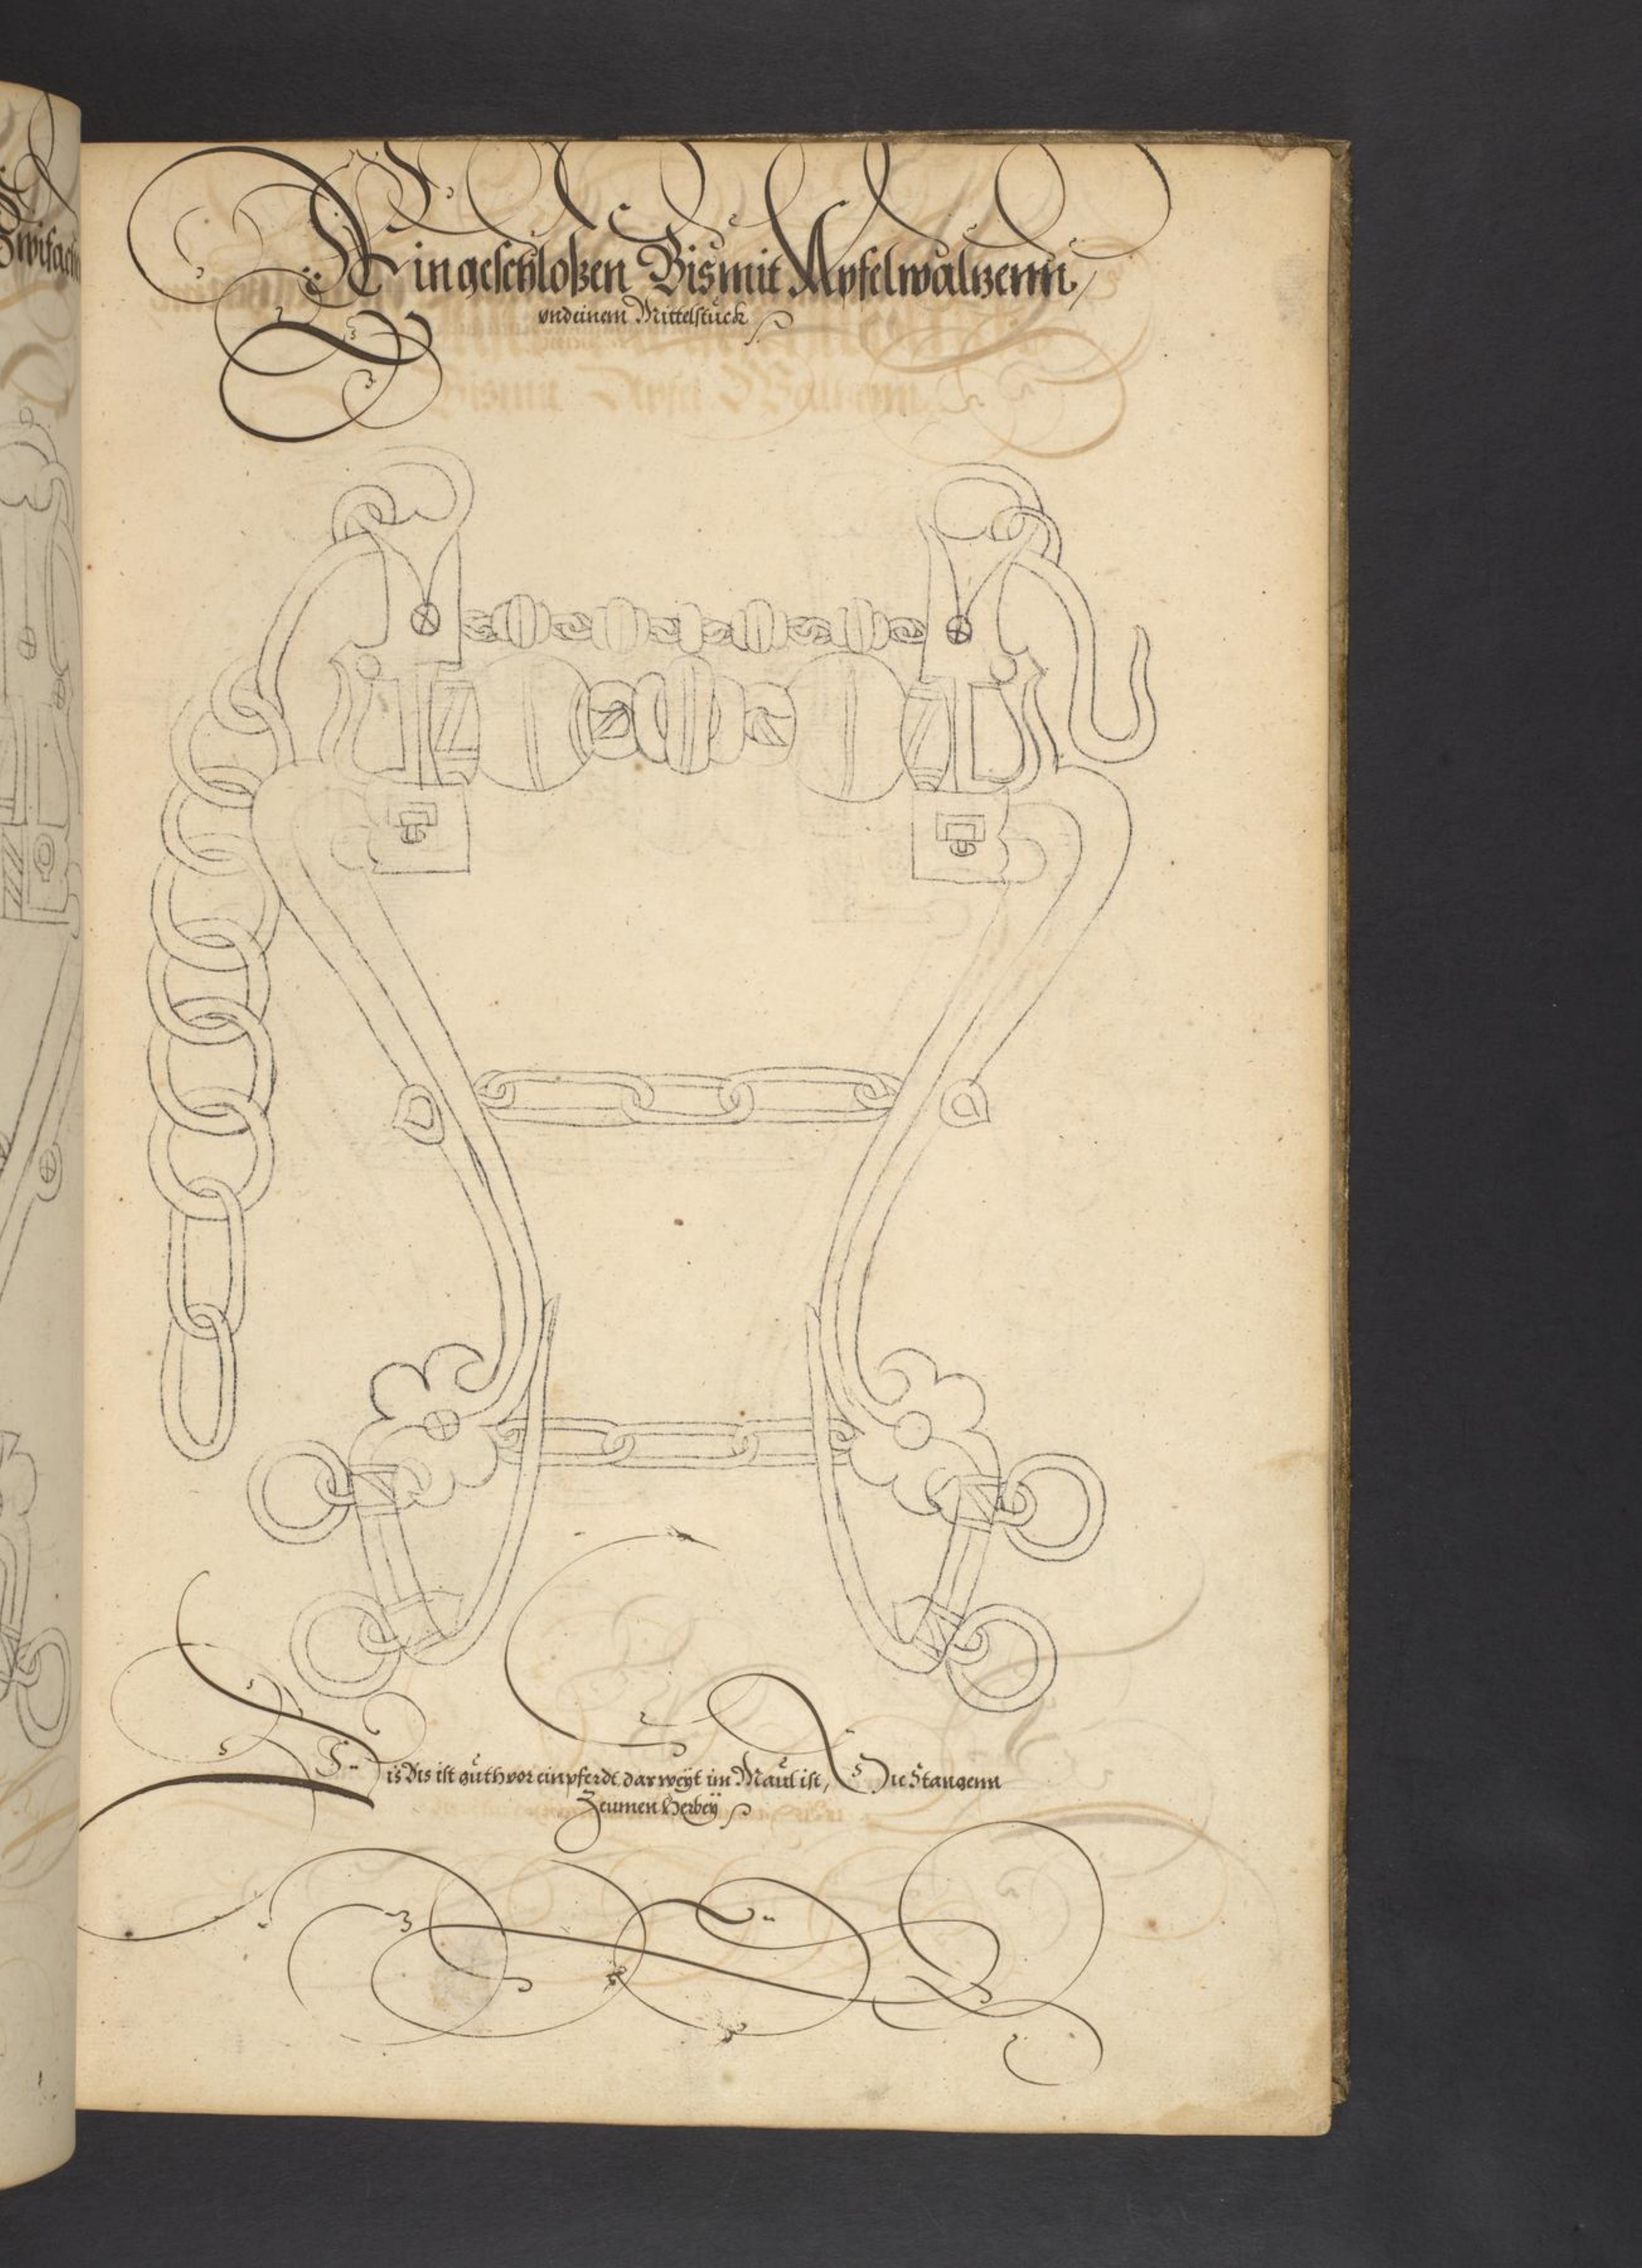 Zwifach
Ein geschloßen Bis mit Apfelwaltzenn,
vnd einem Mittelstuck
Dis Bis ist guth vor ein pferdt dar weyt im Maul ist, Die Stangenn
Zeumen Herbeÿ